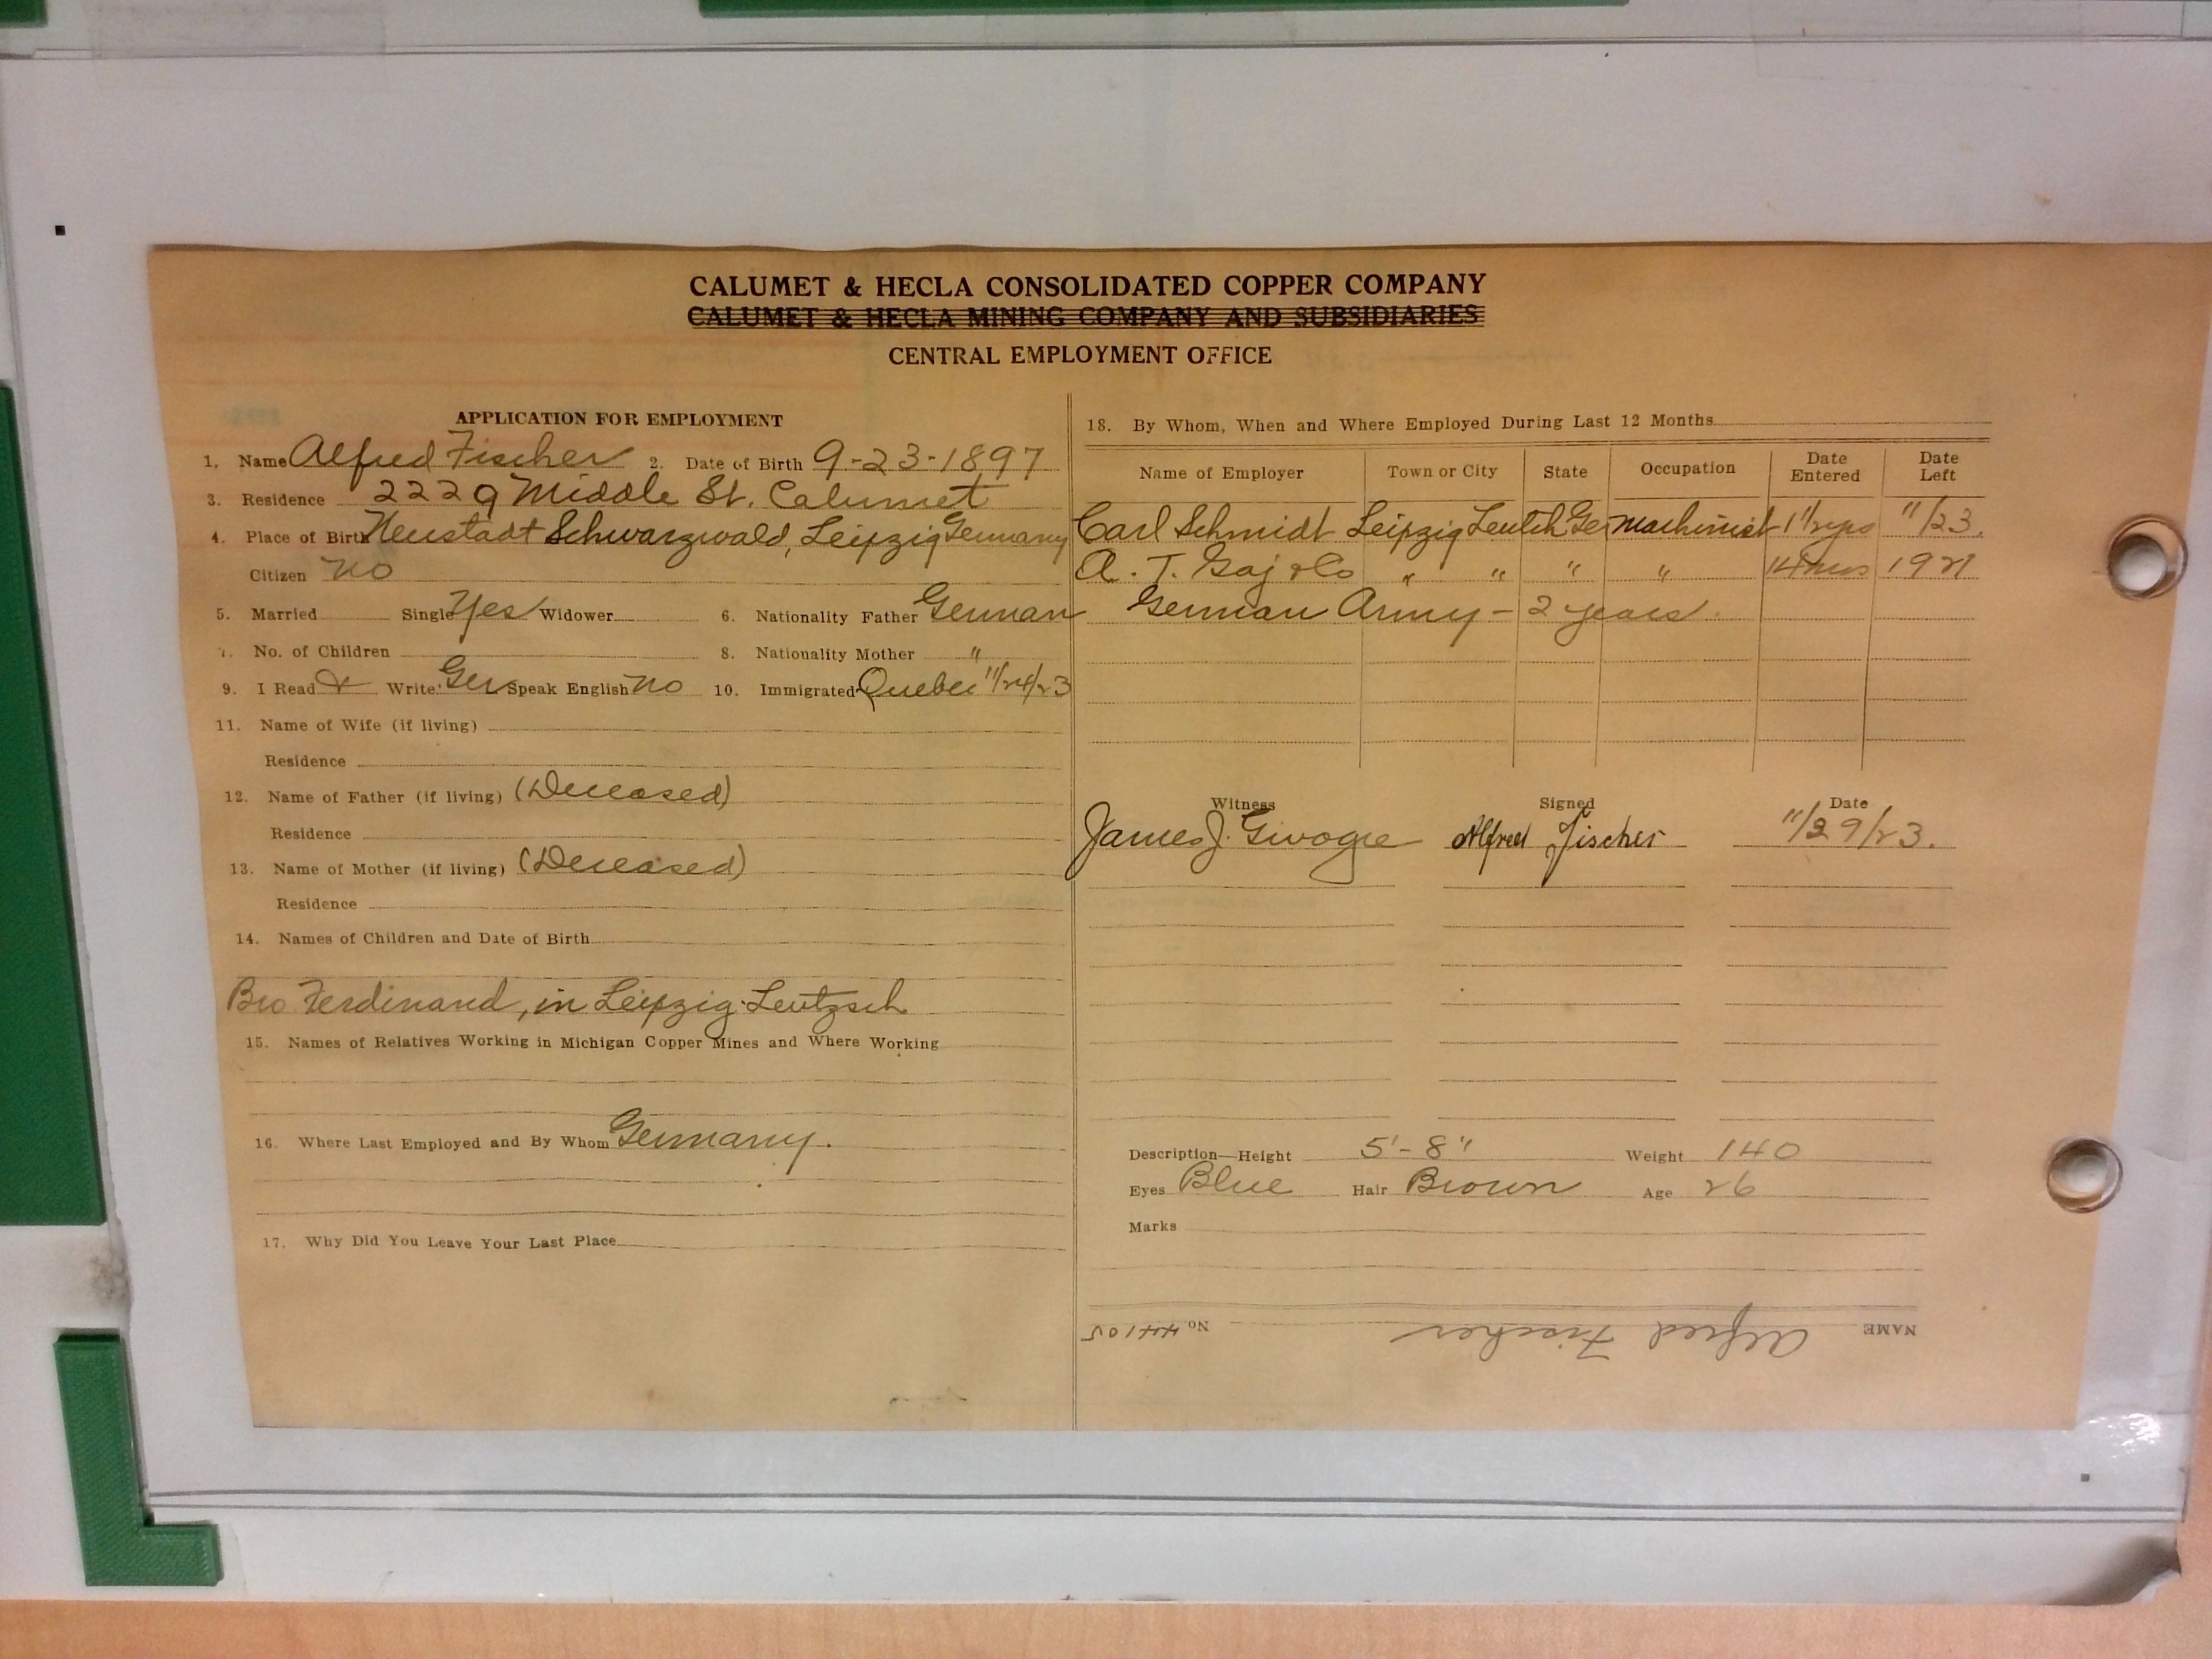 CALUMET & HECLA CONSOLIDATED COPPER COMPANY
CALUMET & HECLA MINING COMPANY AND SUBSIDIARIES
CENTRAL EMPLOYMENT OFFICE
APPLICATION FOR EMPLOYMENT
1. Name Alfred Fischer 2. Date of Birth 9-23-1897
3. Residence 2229 Middle St. Calumet
4. Place of Birth Neustadt Schwarzwald, Leipzig Germany
Citizen no
5. Married Single Yes Widower 6. Nationality Father German
7. No. of Children 8. Nationality Mother "
9. I Read & Write Ger Speak English no 10. Immigrated Quebec 11/24/23
11. Name of Wife (if living)
Residence
12. Name of Father (if living) (Deceased)
Residence
13. Name of Mother (if living) (Deceased)
Residence
14. Names of Children and Date of Birth
Bro Ferdinand, in Leipzig-Leutzsch
15. Names of Relatives Working in Michigan Copper Mines and Where Working
16. Where Last Employed and By Whom Germany.
17. Why Did You Leave Your Last Place
18. By Whom, When and Where Employed During Last 12 Months
Name of Employer Town or City State Occupation Date Entered Date Left
Carl Schmidt Leipzig Ger Machinist 11/23.
A. T. & Co " " " " 14 mos 1921
German Army - 2 years.
Witness Signed Date
James J. Alfred Fischer 11/29/23.
Description—Height 5'-8" Weight 140
Eyes Blue Hair Brown Age 26
Marks
NAME Alfred Fischer No. 44105